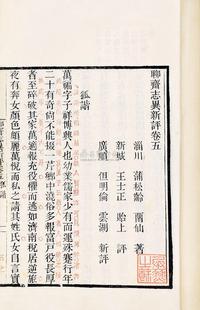 聊齋志異新評卷五
淄川 蒲松齡 留仙 著
新城 王士正 貽上 評
廣順 但明倫 雲湖 新評
狐諧
萬福字子祥博興人也幼業儒家少有而運殊蹇行年
二十有奇尚不能掇一芹鄉中澆俗多報富戶役長厚
者至碎破其家萬適報充役懼而逃如濟南稅居逆旅
夜有奔女顏色頗麗萬悅而私之請其姓氏女自言實